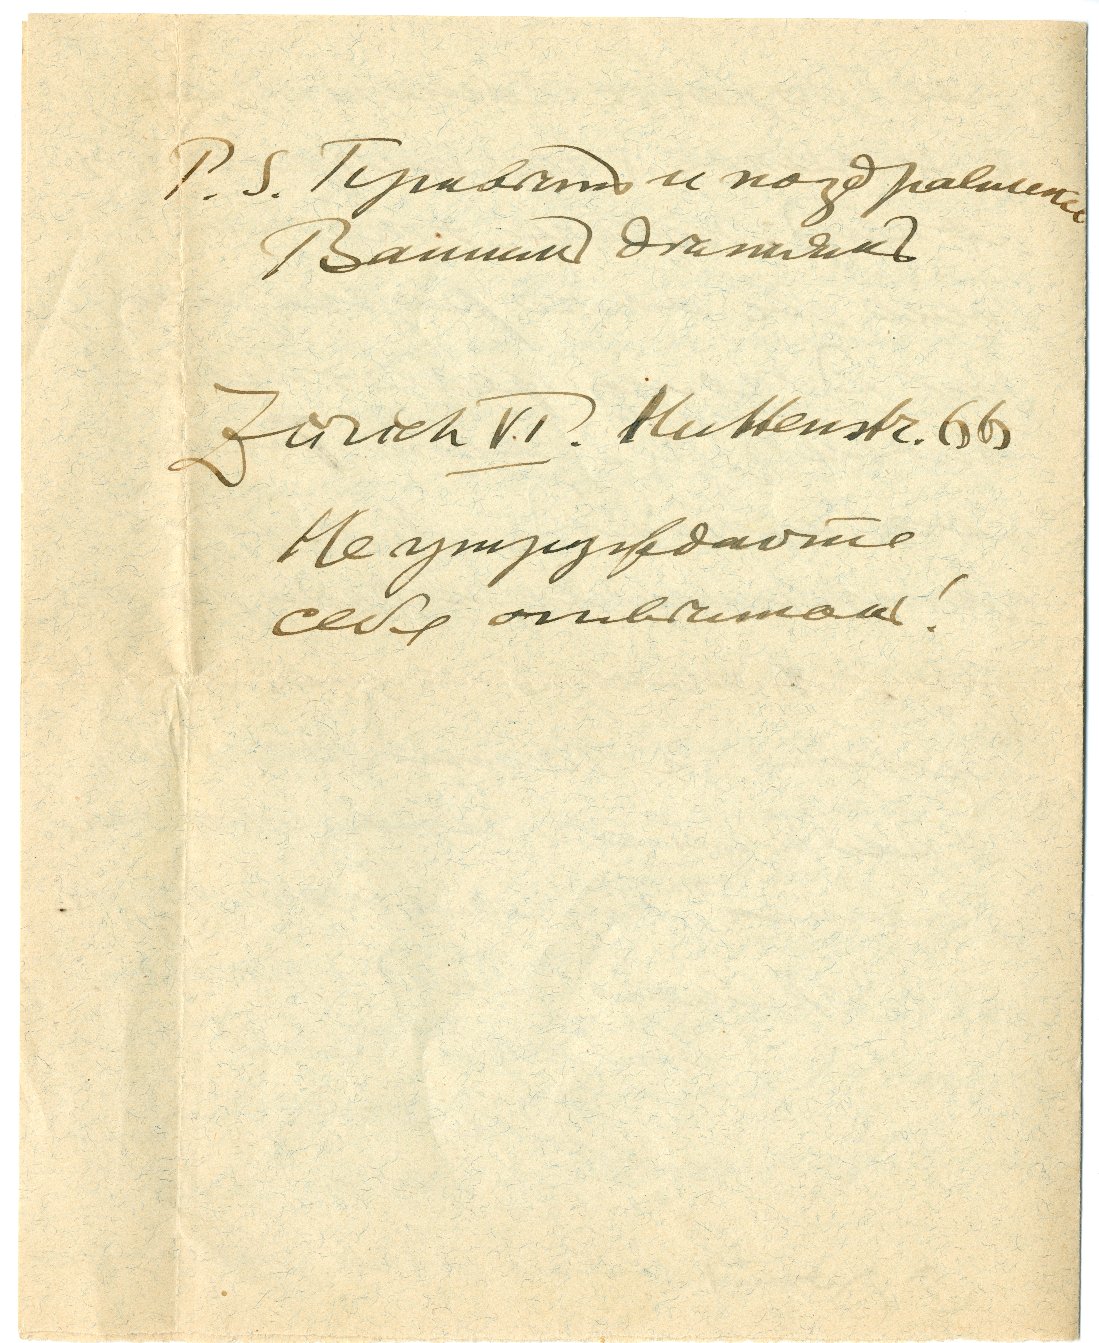 P.S. Привѣтъ и поздравленье
Вашимъ дѣтямъ
Zürich VI. Huttenstr. 66
Не утруждайте
себя отвѣтомъ!